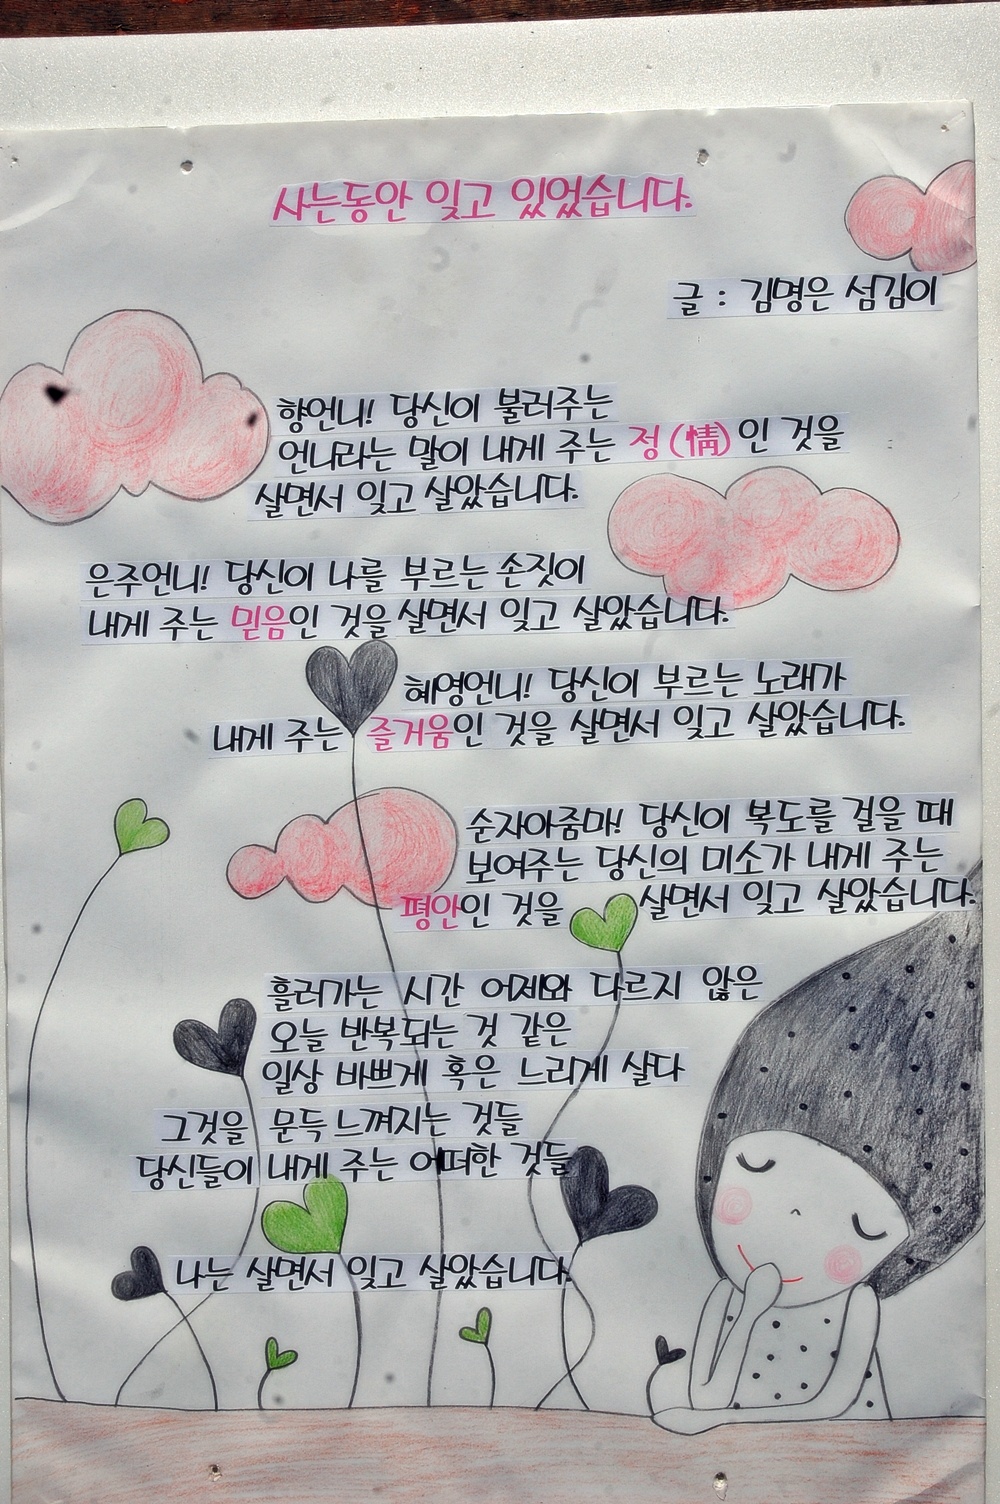 사는동안 잊고 있었습니다.
글 : 김명은 섬김이
향언니! 당신이 불러주는
언니라는 말이 내게 주는 정(情)인 것을
살면서 잊고 살았습니다.
은주언니! 당신이 나를 부르는 손짓이
내게 주는 믿음인 것을 살면서 잊고 살았습니다.
혜영언니! 당신이 부르는 노래가
내게 주는 즐거움인 것을 살면서 잊고 살았습니다.
순자아줌마! 당신이 복도를 걸을 때
보여주는 당신의 미소가 내게 주는
평안인 것을 살면서 잊고 살았습니다.
흘러가는 시간 어제와 다르지 않은
오늘 반복되는 것 같은
일상 바쁘게 혹은 느리게 살다
그것을 문득 느껴지는 것들
당신들이 내게 주는 어떠한 것들
나는 살면서 잊고 살았습니다.